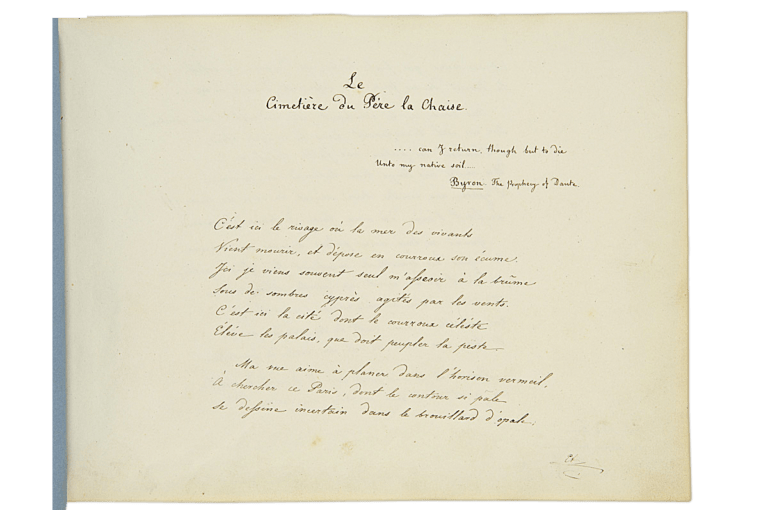 Le
Cimetière du Père la Chaise.
.... can J return, though but to die
Unto my native soil...
Byron. The Prophecy of Dante
C'est ici le rivage où la mer des vivants
Vient mourir, et dépose en courroux son écume.
Jci je viens souvent seul m'asseoir à la brûme
Sous de sombres cyprès agités par les vents.
C'est ici la cité dont le courroux céléste
Elève les palais, que doit peupler la peste.
Ma vue aime à planer dans l'horison vermeil,
A chercher ce Paris, dont le contour si pale
se dessine incertain dans le brouillard d'opale.